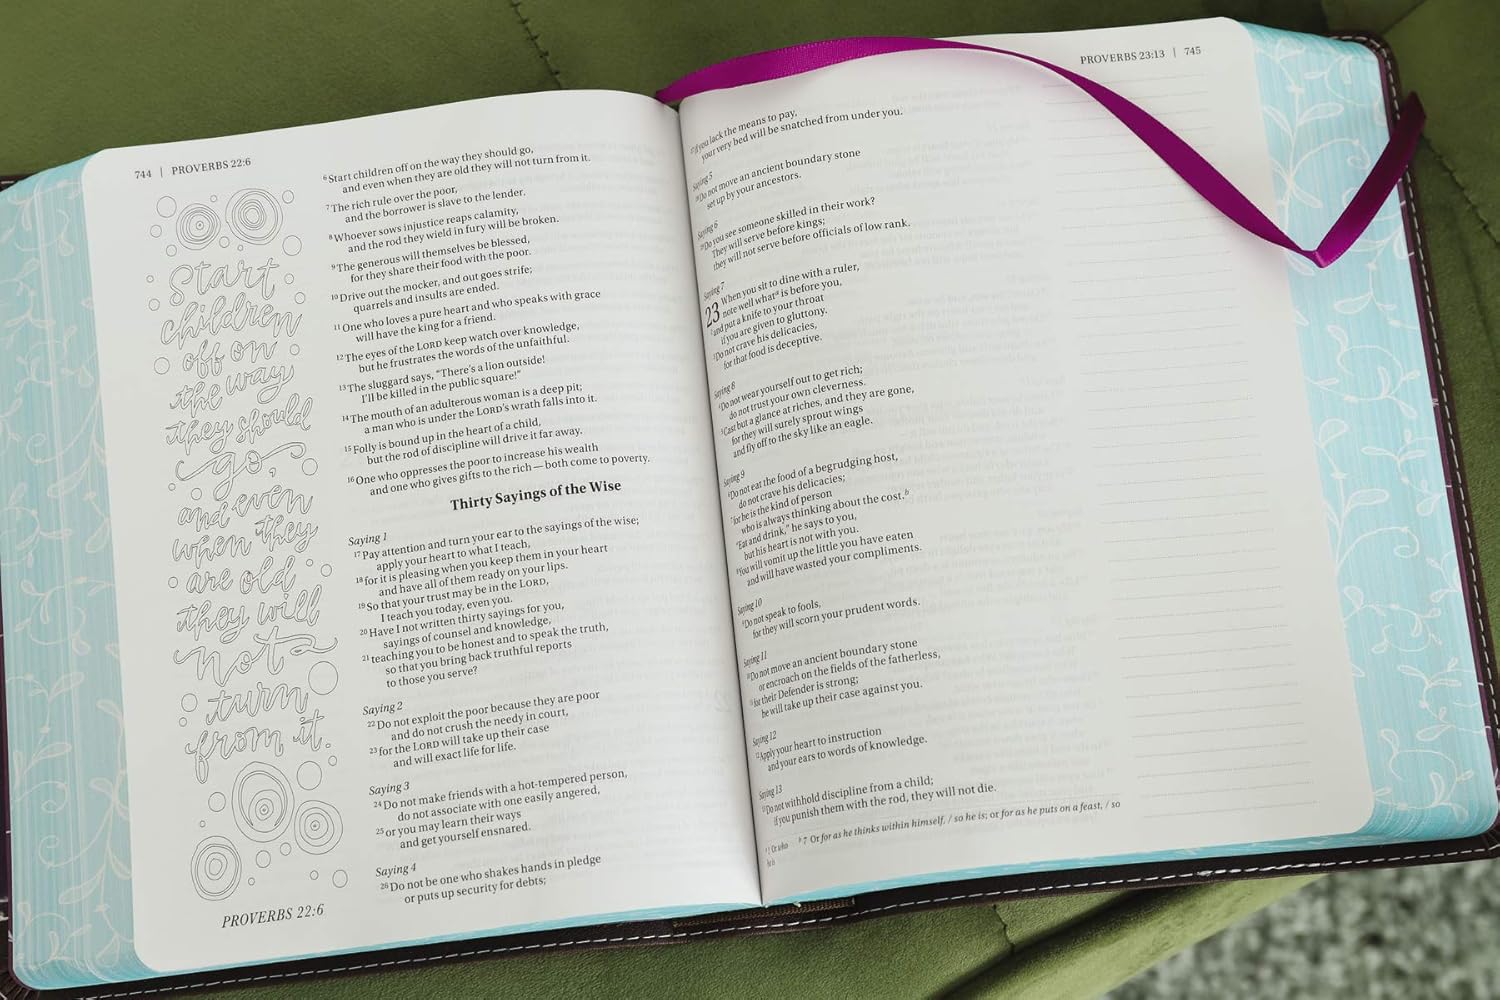 744 | PROVERBS 22:6
Start
children
off on
the way
they should
go,
and even
when they
are old
they will
not
turn
from it.
PROVERBS 22:6
6 Start children off on the way they should go,
and even when they are old they will not turn from it.
7 The rich rule over the poor,
and the borrower is slave to the lender.
8 Whoever sows injustice reaps calamity,
and the rod they wield in fury will be broken.
9 The generous will themselves be blessed,
for they share their food with the poor.
10 Drive out the mocker, and out goes strife;
quarrels and insults are ended.
11 One who loves a pure heart and who speaks with grace
will have the king for a friend.
12 The eyes of the LORD keep watch over knowledge,
but he frustrates the words of the unfaithful.
13 The sluggard says, “There's a lion outside!
I'll be killed in the public square!”
14 The mouth of an adulterous woman is a deep pit;
a man who is under the LORD's wrath falls into it.
15 Folly is bound up in the heart of a child,
but the rod of discipline will drive it far away.
16 One who oppresses the poor to increase his wealth
and one who gives gifts to the rich — both come to poverty.
Thirty Sayings of the Wise
Saying 1
17 Pay attention and turn your ear to the sayings of the wise;
apply your heart to what I teach,
18 for it is pleasing when you keep them in your heart
and have all of them ready on your lips.
19 So that your trust may be in the LORD,
I teach you today, even you.
20 Have I not written thirty sayings for you,
sayings of counsel and knowledge,
21 teaching you to be honest and to speak the truth,
so that you bring back truthful reports
to those you serve?
Saying 2
22 Do not exploit the poor because they are poor
and do not crush the needy in court,
23 for the LORD will take up their case
and will exact life for life.
Saying 3
24 Do not make friends with a hot-tempered person,
do not associate with one easily angered,
25 or you may learn their ways
and get yourself ensnared.
Saying 4
26 Do not be one who shakes hands in pledge
or puts up security for debts;
PROVERBS 23:13 | 745
if you lack the means to pay,
your very bed will be snatched from under you.
Saying 5
Do not move an ancient boundary stone
set up by your ancestors.
Saying 6
Do you see someone skilled in their work?
They will serve before kings;
they will not serve before officials of low rank.
Saying 7
23 When you sit to dine with a ruler,
note well what a is before you,
and put a knife to your throat
if you are given to gluttony.
Do not crave his delicacies,
for that food is deceptive.
Saying 8
Do not wear yourself out to get rich;
do not trust your own cleverness.
Cast but a glance at riches, and they are gone,
for they will surely sprout wings
and fly off to the sky like an eagle.
Saying 9
Do not eat the food of a begrudging host,
do not crave his delicacies;
for he is the kind of person
who is always thinking about the cost. b
“Eat and drink,” he says to you,
but his heart is not with you.
You will vomit up the little you have eaten
and will have wasted your compliments.
Saying 10
Do not speak to fools,
for they will scorn your prudent words.
Saying 11
Do not move an ancient boundary stone
or encroach on the fields of the fatherless,
for their Defender is strong;
he will take up their case against you.
Saying 12
Apply your heart to instruction
and your ears to words of knowledge.
Saying 13
Do not withhold discipline from a child;
if you punish them with the rod, they will not die.
Or who b 7 Or for as he thinks within himself, / so he is; or for as he puts on a feast, / so
he is